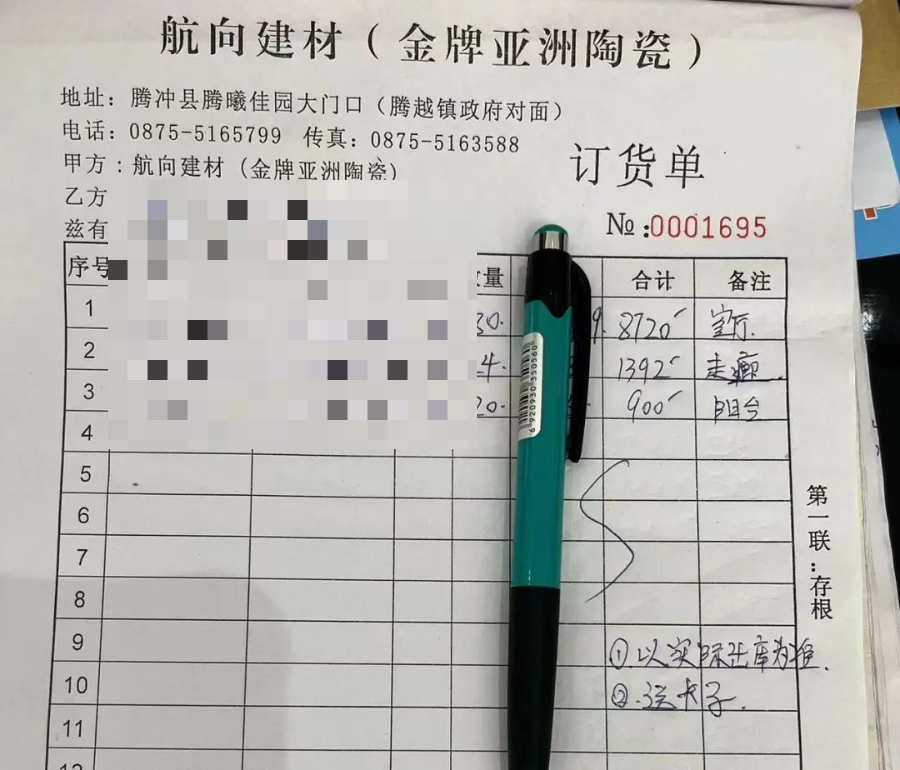 航向建材（金牌亚洲陶瓷）
地址：腾冲县腾曦佳园大门口（腾越镇政府对面）
电话：0875-5165799 传真：0875-5163588
甲方：航向建材（金牌亚洲陶瓷）
订货单
乙方
兹有
№:0001695
序号 量 合计 备注
1 30. 9. 8720
2 4. 1392 走
3 20. 900 阳台
4
5
6
7
8
9
10
11
①.以实际出库为准.
②.送卡子.
第一联：存根
6 920930 350560